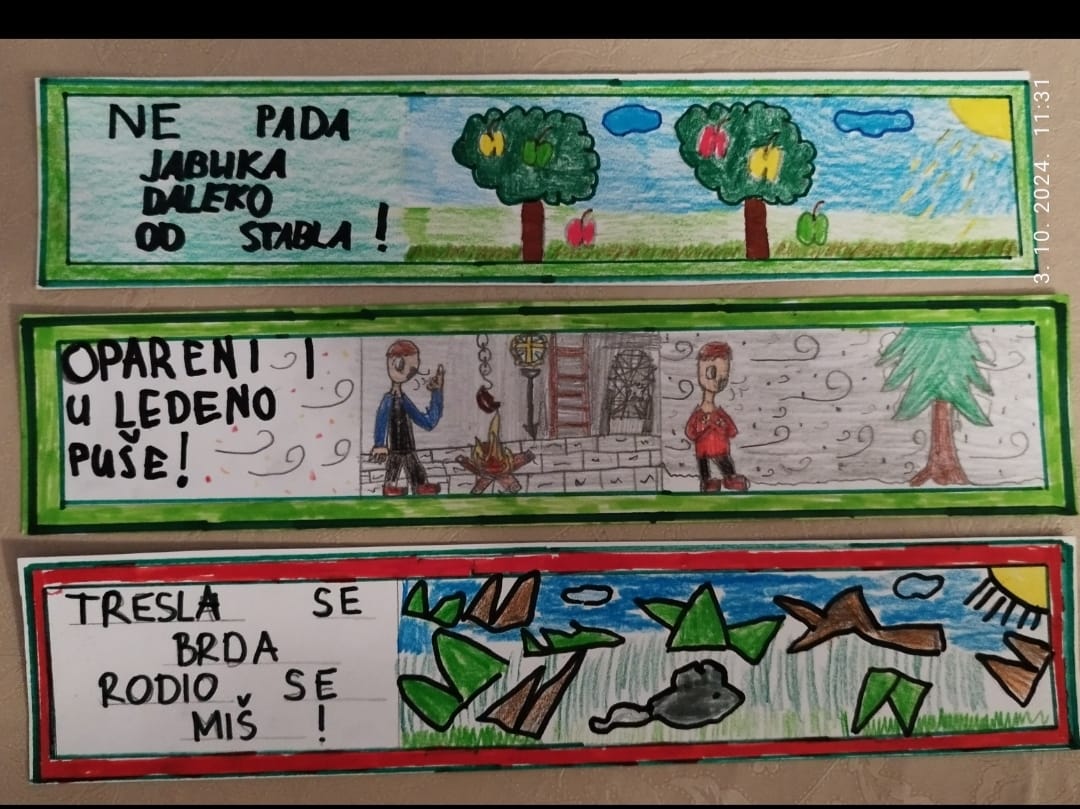 NE PADA
JABUKA
DALEKO
OD STABLA!
3. 10. 2024. 11:31
OPARENI I
U LEDENO
PUŠE!
TRESLA SE
BRDA
RODIO SE
MIŠ !